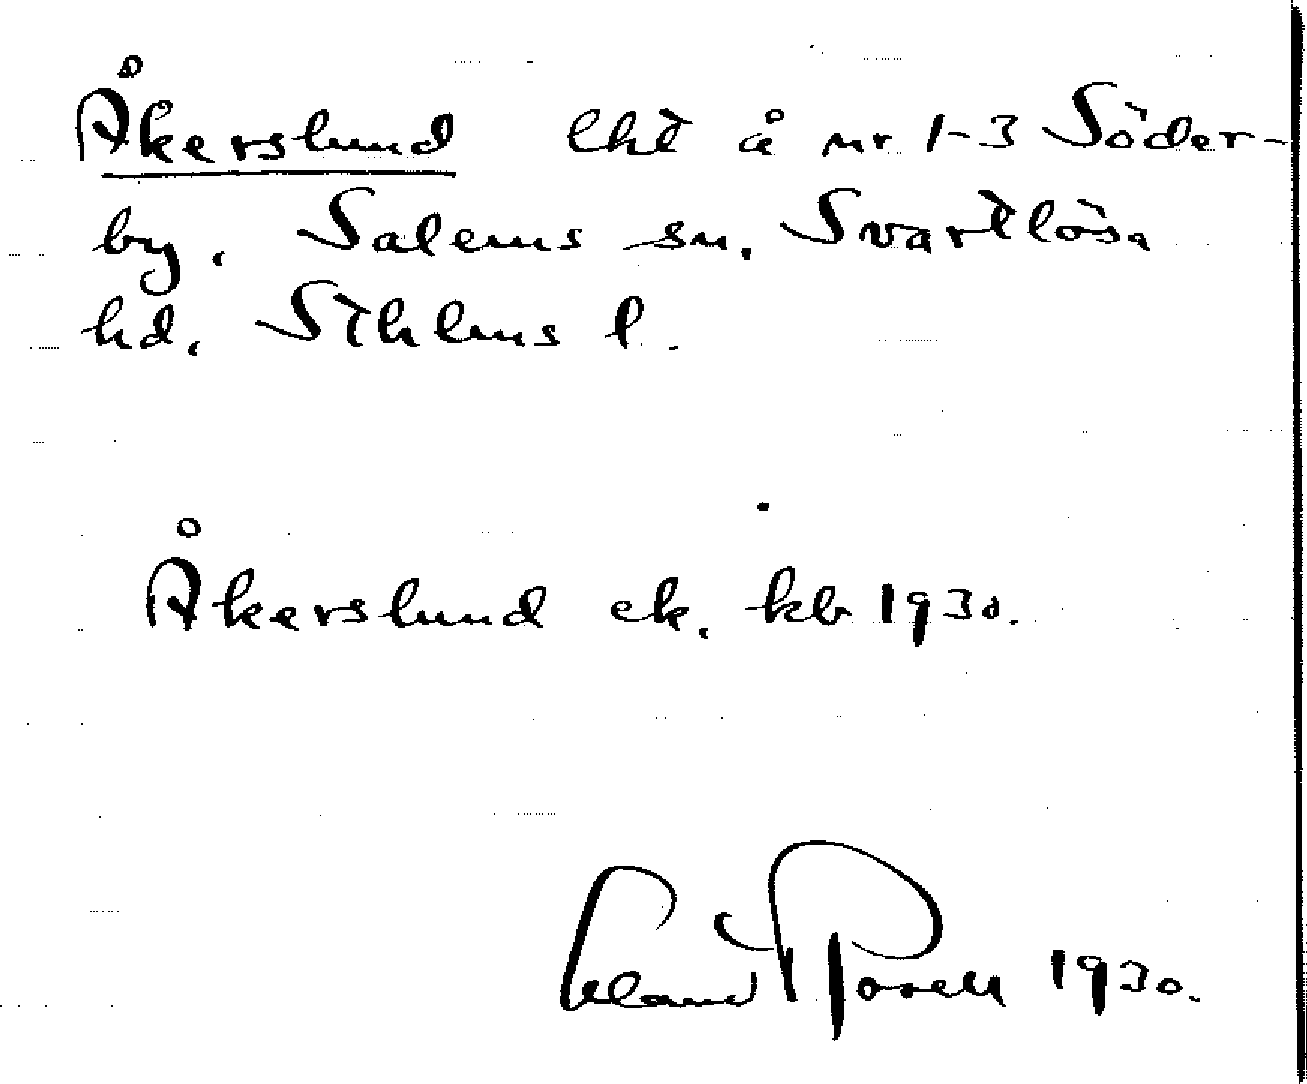 Åkerslund lht å nr 1-3 Söder-
by. Salems sn. Svartlösa
hd. Sthlms l.
Åkerslund ek. kb 1930.
Erland Rosell 1930.